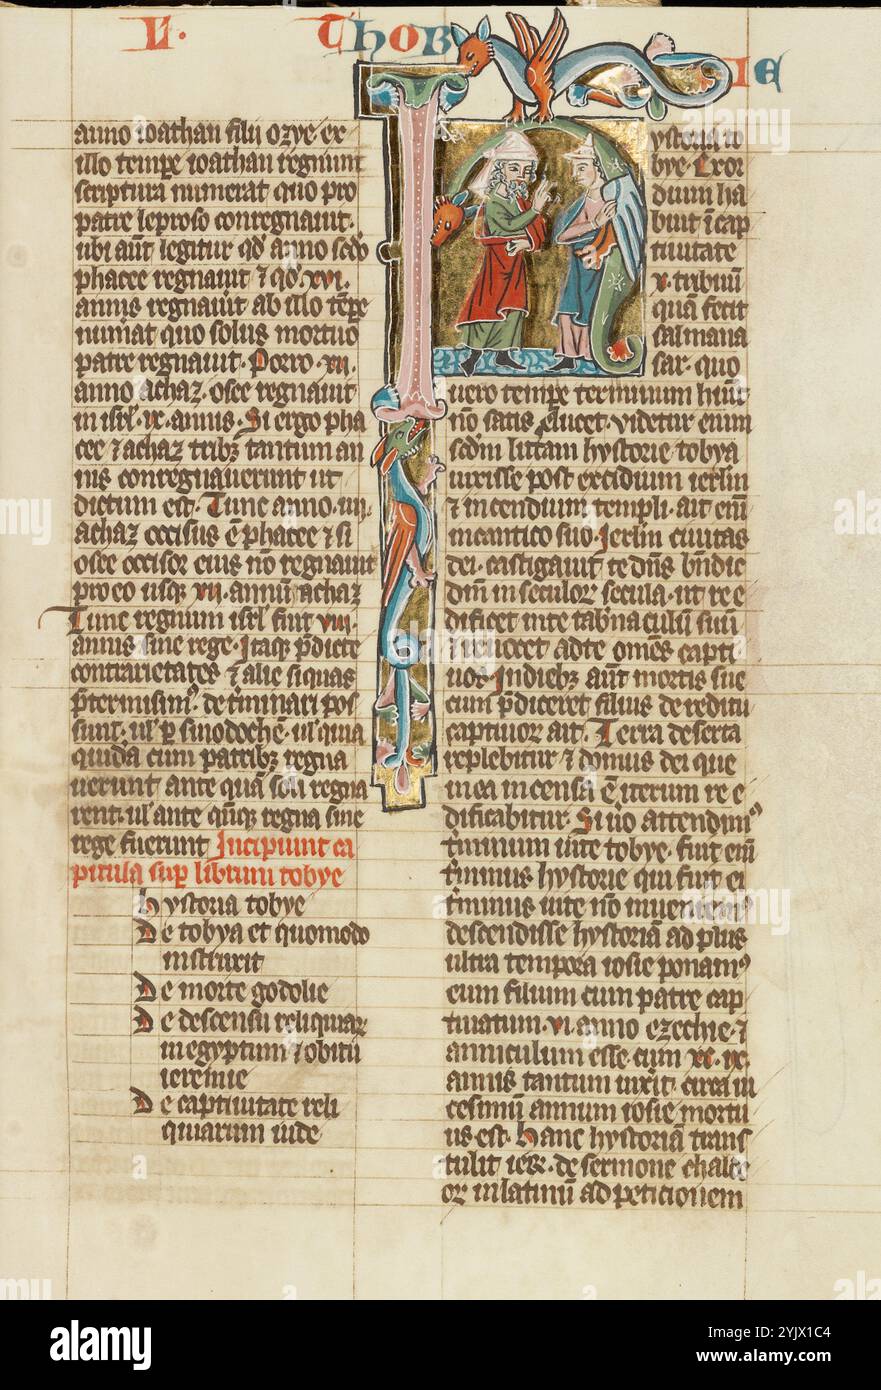 L. THOBIE
anno ioathan filii ozye ex
illo tempe ioathan regnum
scriptura numerat quo pro
patre leproso conregnauit.
ubi aut legitur qd anno scdo
phacee regnauit ⁊ qd xvi.
annis regnauit ab illo tepe
numat quo solus mortuo
patre regnauit. Porro xii.
anno achaz. osee regnauit
in isrl ix. annis. Si ergo pha
cee ⁊ achaz tribz tantum an
nis conregnauerunt ut
dictum est. Tunc anno iiij.
achaz occisus e phacee ⁊ si
osee occisor eius no regnauit
pro eo usqz vii. annu achaz
Tunc regnum isrl fuit viii.
annis sine rege. Itaqz pdicte
contrarietates ⁊ alie si quas
ptermisimꝰ. determinari pos
sunt. ul' p sinodochen. ul' quia
quida cum patribz regna
uerunt ante qua soli regna
rent. ul' ante qm̄qz regna sine
rege fuerunt Incipiunt ca
pitula sup librum tobye
hystoria tobye
De tobya et quomodo
instruxit
De morte godolie
De descensu reliquiar
in egyptum ⁊ obitu
ieremie
De captiuitate reli
quiarum iude
ystoria to
bye. Exor
dium ha
buit i cap
tiuitate
x. tribuu
quam fecit
salmana
sar. quo
uero tempe terminum hūt
no satis elucet. videtur enim
scdm littam hystorie tobya
uixisse post excidium ierlm
⁊ incendium templi. ait em
in cantico suo. Ierlm ciuitas
dei. castigauit te dns. bndic
dm in seculor secula. ut ree
dificet in te tabnaculu suu
⁊ reuocet ad te omes capti
uos. In diebz aut mortis sue
cum pdiceret filius de reditu
captiuor ait. Terra deserta
replebitur ⁊ domus dei que
in ea incensa e iterum ree
dificabitur. Si uo attendimꝰ
tminum uite tobye. fuit em
tminus hystorie qui fuit ei
tminus uite no inueniemꝰ
descendisse hystoria ad plus
ultra tempora iosie ponamꝰ
eum filium cum patre cap
tiuatum. vi anno ezechie. ⁊
anniculum esse cum xc. ix.
annis tantum uixit. circa ui
cesimu annum iosie mortu
us est. Hanc hystoria trans
tulit ier. de sermone chalde
or in latinu ad peticionem
alamy
Image ID: 2YJX1C4
www.alamy.com